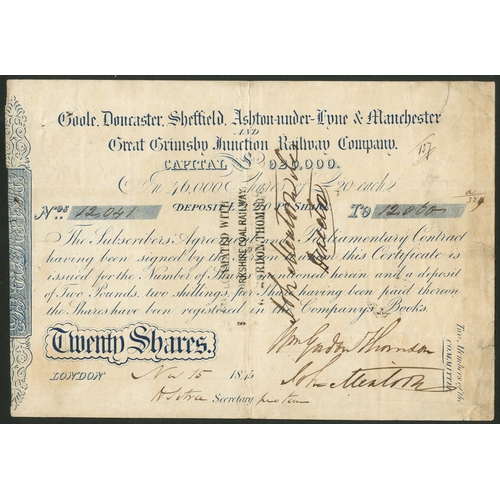 Goole, Doncaster, Sheffield, Ashton-under-Lyne & Manchester
AND
Great Grimsby Junction Railway Company.
CAPITAL £920,000.
In 46,000 Shares of £20 each
137
Nos 12,041 DEPOSIT £2.2.0 PER SHARE To 12,060
The Subscribers' Agreement and Parliamentary Contract
having been signed by the Person to whom this Certificate is
issued for the Number of Shares mentioned herein and a deposit
of Two Pounds, two shillings, per Share having been paid thereon
the Shares have been registered in the Company's Books.
Twenty Shares.
LONDON Nov 15 1845
Secretary pro tem
Wm Gordon Thomson
Two Members of the
COMMITTEE
YORKSHIRE COAL RAILWAY
GORDON THOMSON